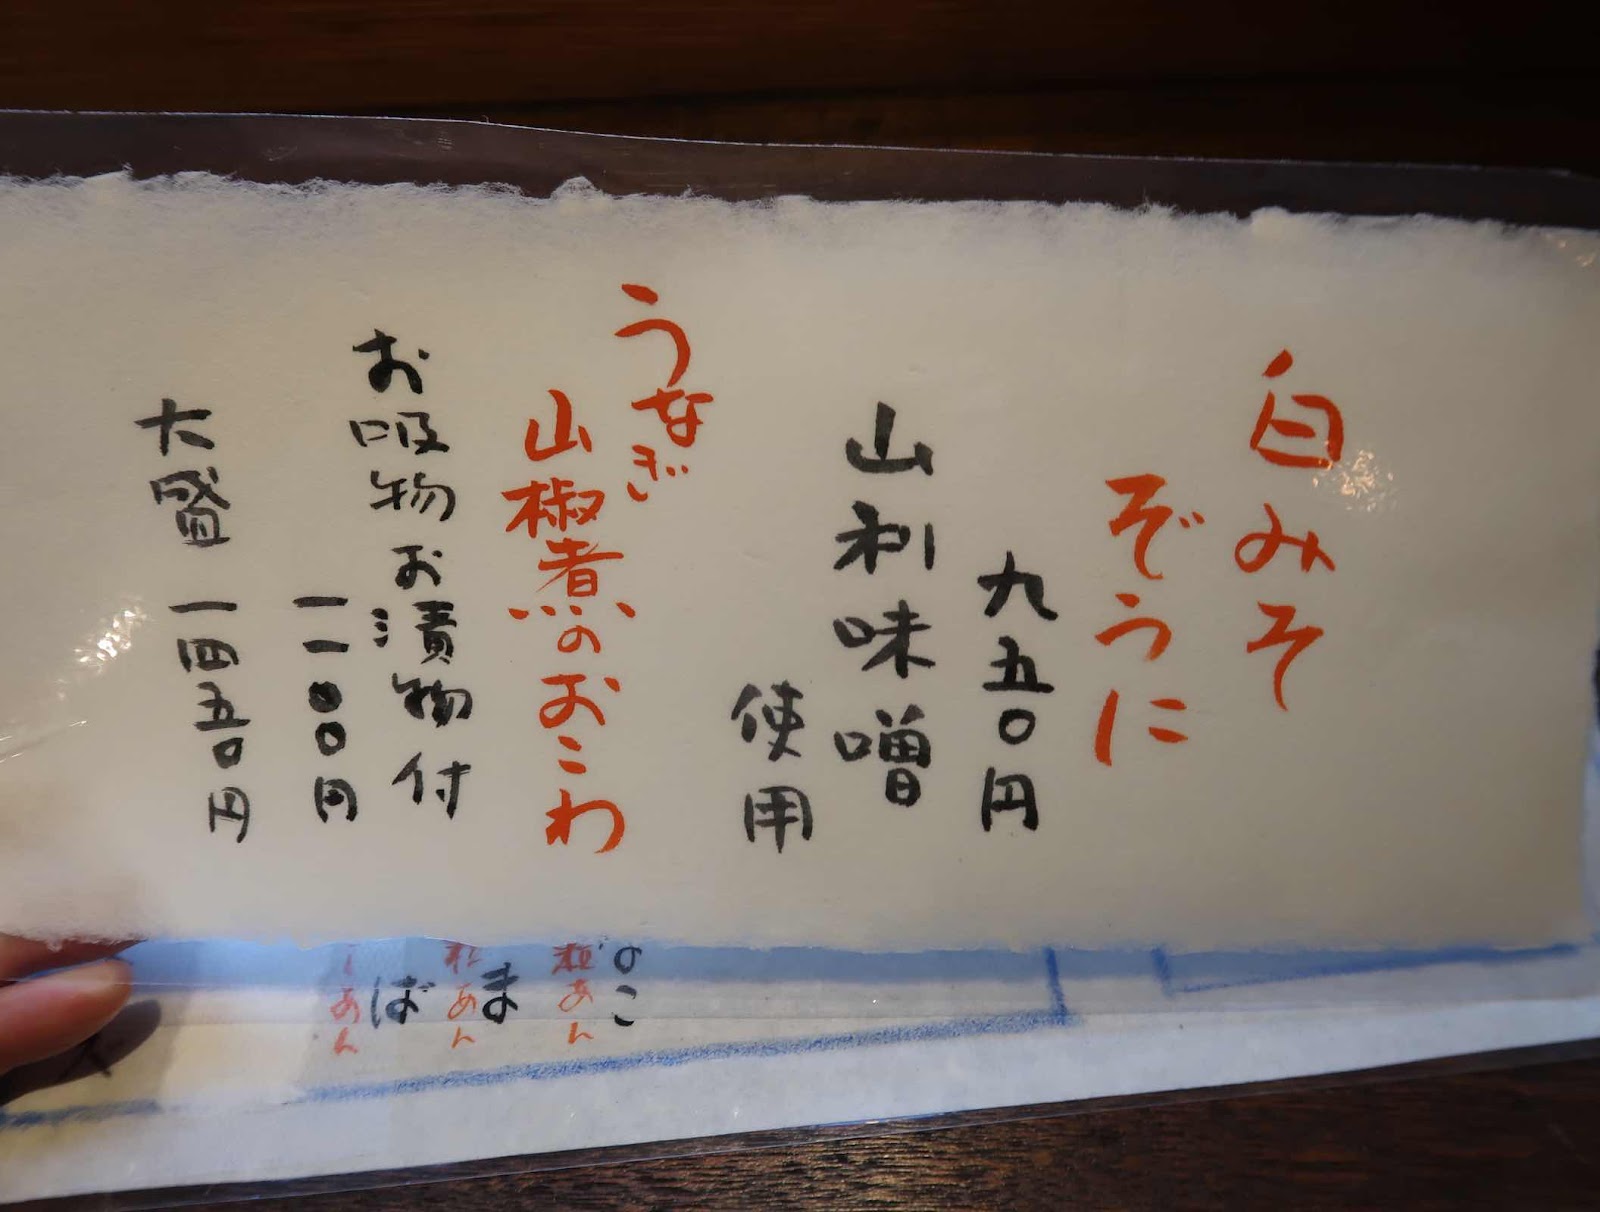 白みそ
ぞうに
九五〇円
山利味噌
使用
うなぎ
山椒煮のおこわ
お吸物お漬物付
一一〇〇円
大盛 一四五〇円
のこ
粒あん
ま
粒あん
ば
あん